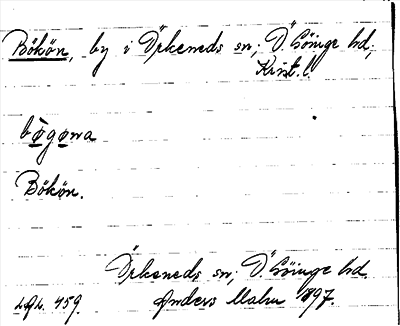 Bökön, by i Örkeneds sn; Ö. Göinge hd;
Krist. l.
bøgøna
Bökön.
Örkeneds sn; Ö. Göinge hd.
459. Anders Malm 1897.